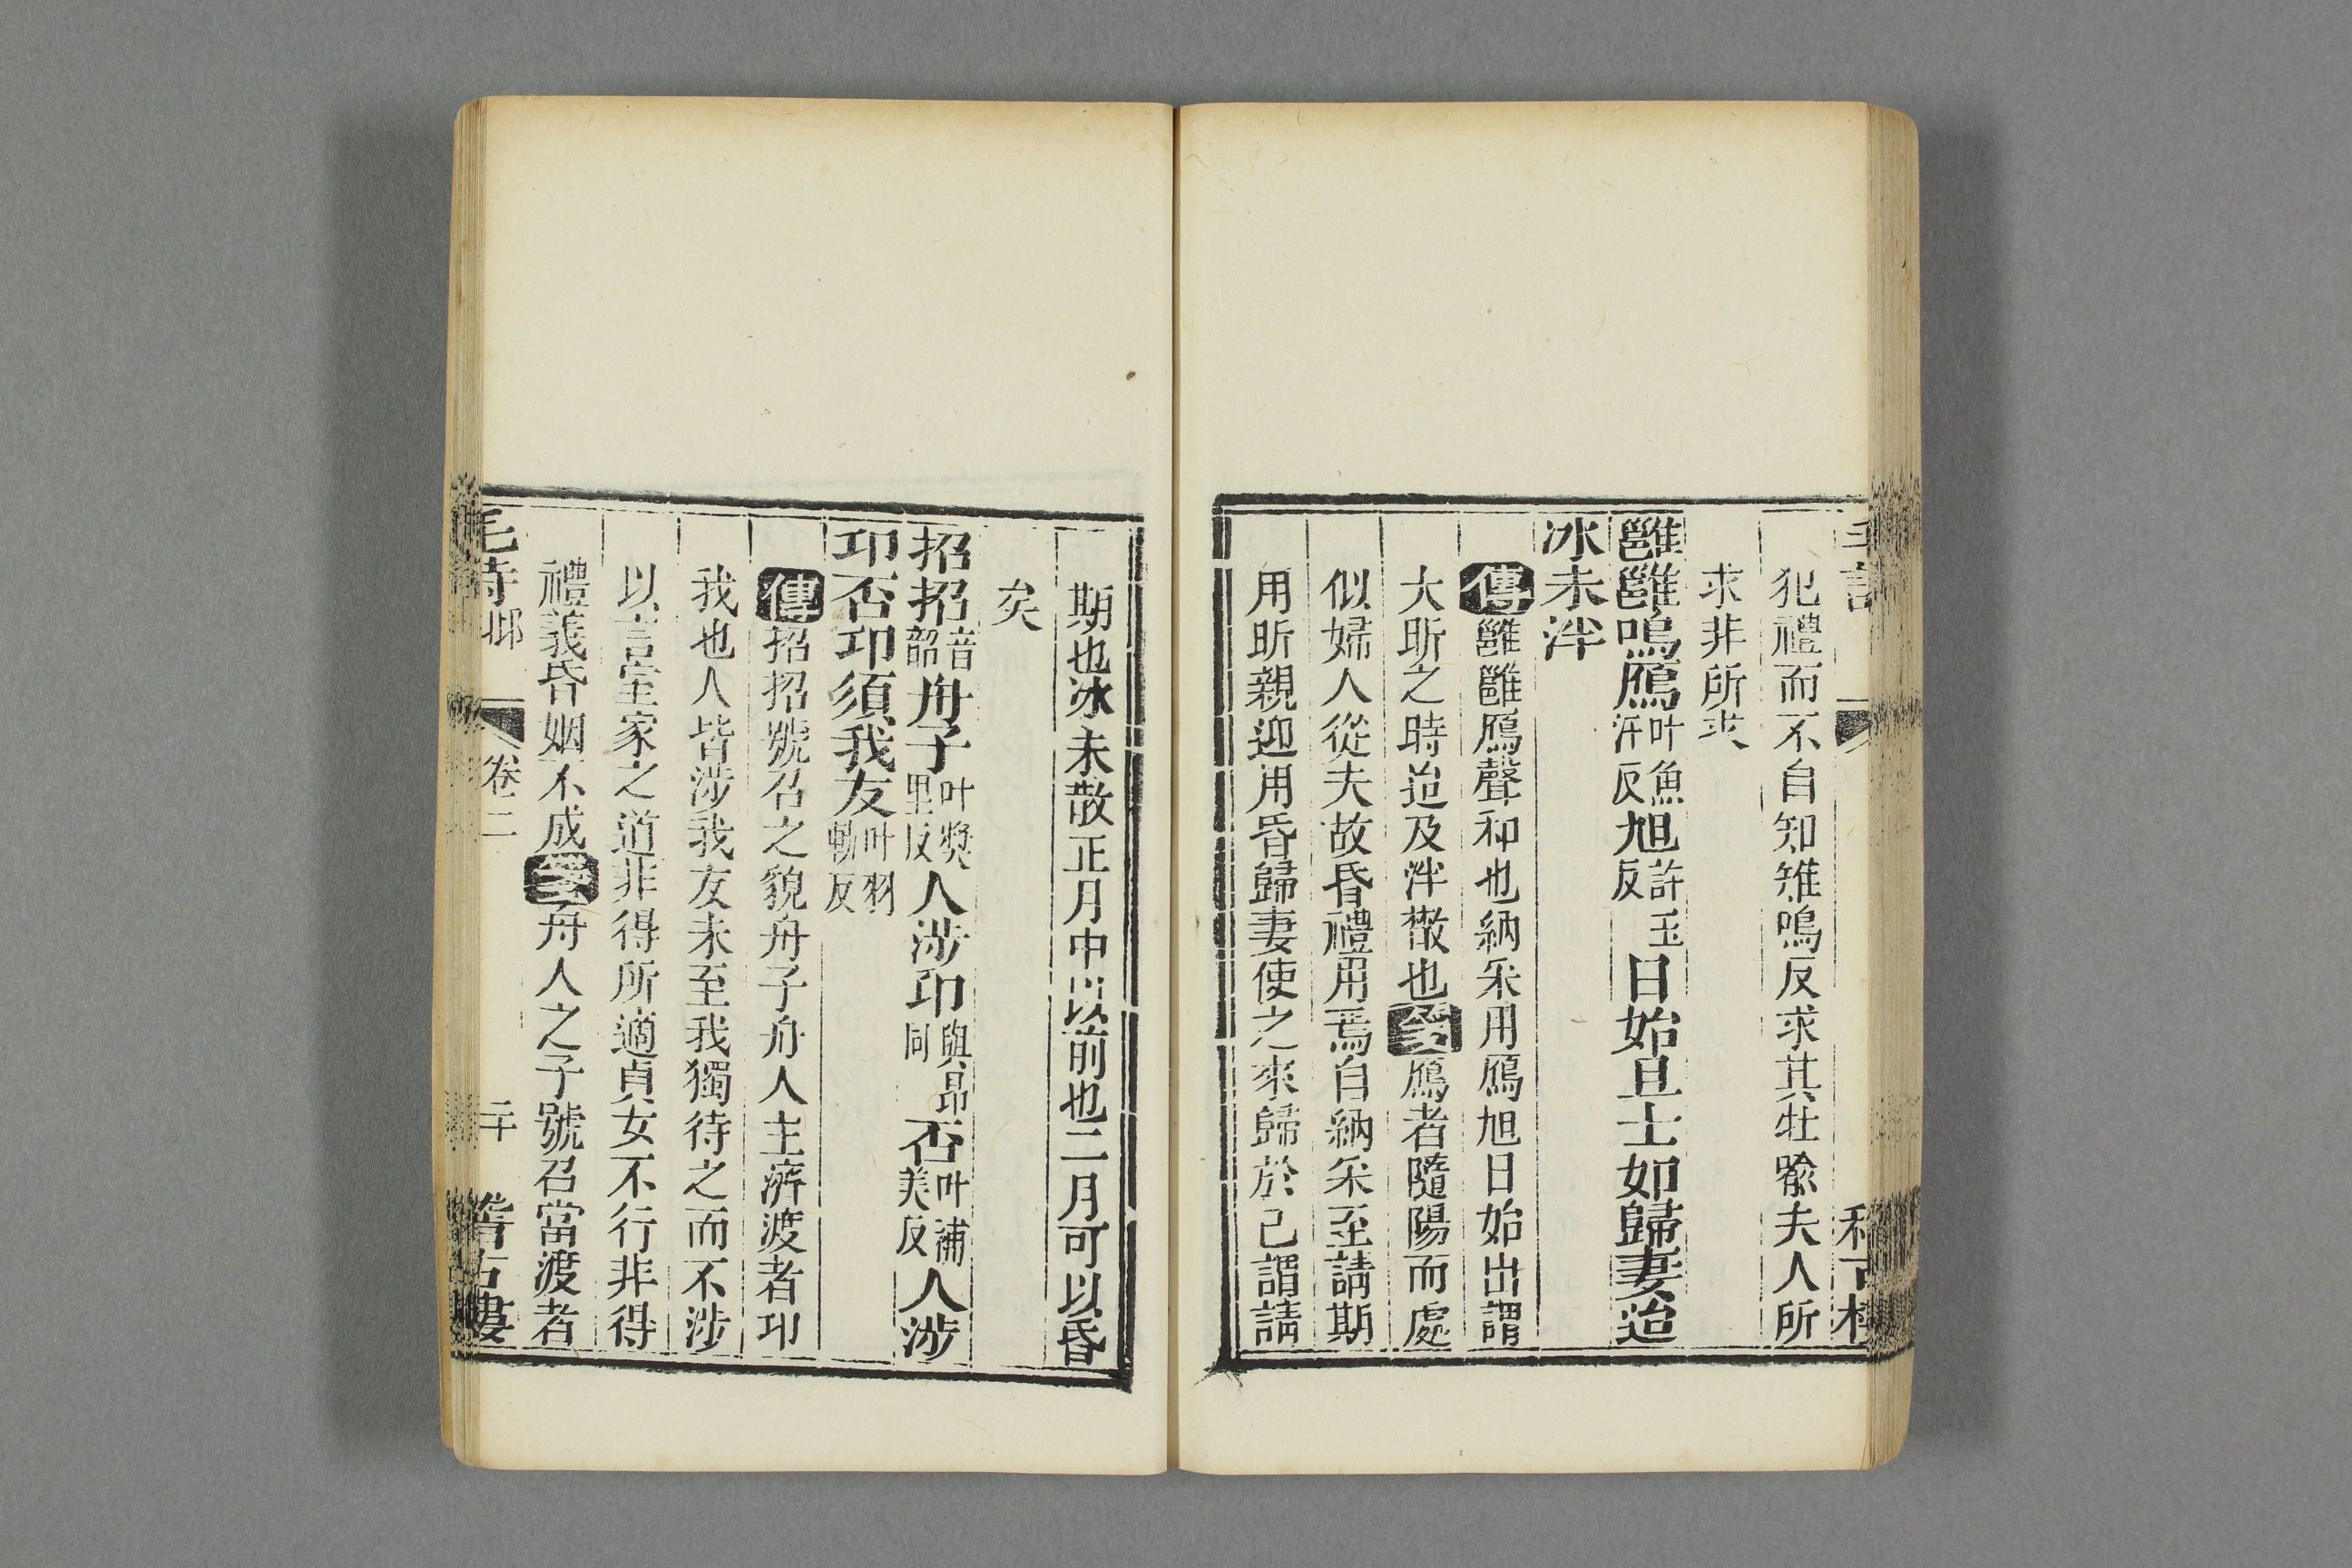 犯禮而不自知雉鳴反求其牡喩夫人所
求非所求
雝雝鳴鴈叶魚汧反旭許玉反日始旦士如歸妻迨
冰未泮
傳雝雝鴈聲和也納采用鴈旭日始出謂
大昕之時迨及泮散也箋鴈者隨陽而處
似婦人從夫故昏禮用焉自納采至請期
用昕親迎用昏歸妻使之來歸於己謂請
期也冰未散正月中以前也二月可以昏
矣
招招音韶舟子叶奬里反人涉卬與昂同否叶補美反人涉
卬否卬須我友叶羽軌反
傳招招號召之貌舟子舟人主濟渡者卬
我也人皆涉我友未至我獨待之而不涉
以言室家之道非得所適貞女不行非得
禮義昏姻不成箋舟人之子號召當渡者
毛詩 邶 卷二 二十